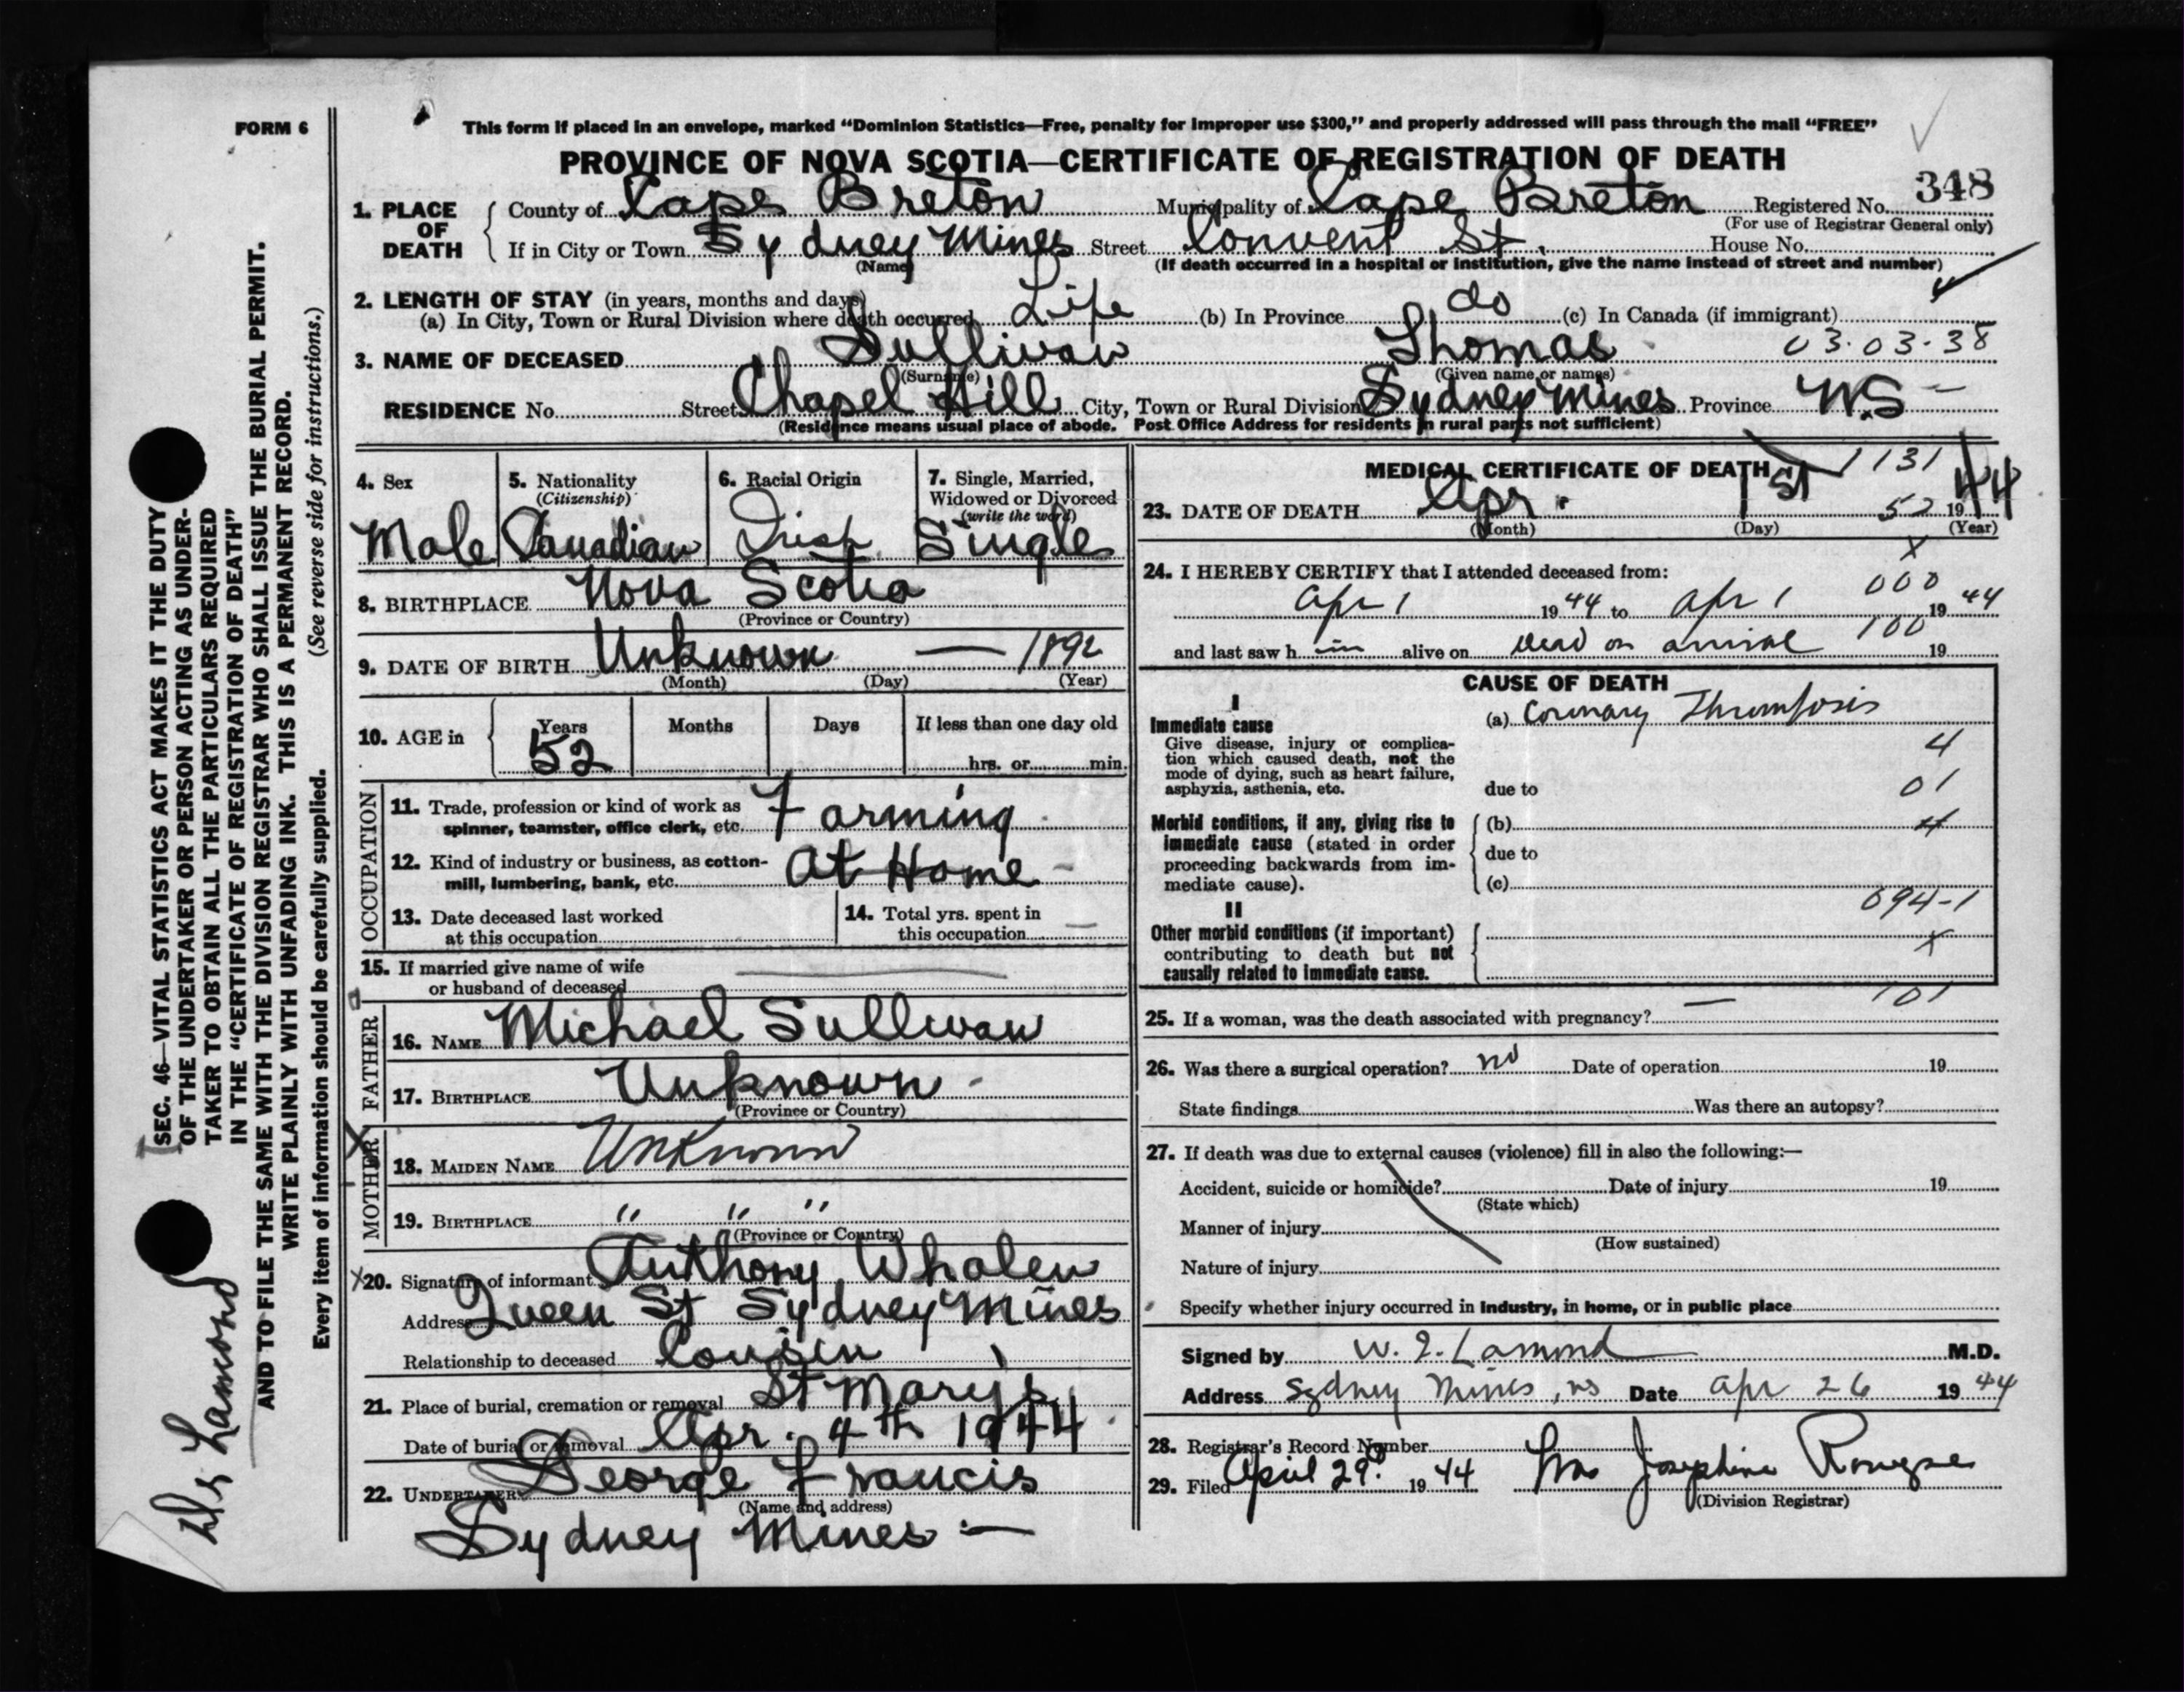 FORM 6
This form if placed in an envelope, marked “Dominion Statistics—Free, penalty for improper use $300,” and properly addressed will pass through the mail “FREE”
PROVINCE OF NOVA SCOTIA—CERTIFICATE OF REGISTRATION OF DEATH
348
1. PLACE OF DEATH County of Cape Breton Municipality of Cape Breton Registered No.
(For use of Registrar General only)
If in City or Town Sydney Mines Street Convent St. House No.
(Name) (If death occurred in a hospital or institution, give the name instead of street and number)
2. LENGTH OF STAY (in years, months and days)
(a) In City, Town or Rural Division where death occurred Life (b) In Province do (c) In Canada (if immigrant)
3. NAME OF DECEASED Sullivan Thomas 03.03.38
(Surname) (Given name or names)
RESIDENCE No. Street Chapel Hill City, Town or Rural Division Sydney Mines Province N.S
(Residence means usual place of abode. Post Office Address for residents in rural parts not sufficient)
4. Sex 5. Nationality 6. Racial Origin 7. Single, Married,
(Citizenship) Widowed or Divorced
(write the word)
Male Canadian Irish Single
8. BIRTHPLACE Nova Scotia
(Province or Country)
9. DATE OF BIRTH Unknown — 1892
(Month) (Day) (Year)
10. AGE in Years Months Days If less than one day old
52 hrs. or min.
OCCUPATION
11. Trade, profession or kind of work as
spinner, teamster, office clerk, etc. Farming
12. Kind of industry or business, as cotton-
mill, lumbering, bank, etc. At Home
13. Date deceased last worked
at this occupation
14. Total yrs. spent in
this occupation —
15. If married give name of wife
or husband of deceased
FATHER
16. NAME Michael Sullivan
17. BIRTHPLACE Unknown
(Province or Country)
MOTHER
18. MAIDEN NAME Unknown
19. BIRTHPLACE " " "
(Province or Country)
X20. Signature of informant Anthony Whalen
Address Queen St Sydney Mines
Relationship to deceased Cousin
21. Place of burial, cremation or removal St Mary's
Date of burial or removal Apr. 4th 1944
22. UNDERTAKER George Francis
(Name and address)
Sydney Mines —
MEDICAL CERTIFICATE OF DEATH 1131
23. DATE OF DEATH Apr. 1st 52 1944
(Month) (Day) (Year)
X
24. I HEREBY CERTIFY that I attended deceased from:
000
Apr 1 1944 to Apr 1 1944
and last saw h im alive on dead on arrival 100 19
CAUSE OF DEATH
I
Immediate cause (a) Coronary Thrombosis
Give disease, injury or complica-
tion which caused death, not the
mode of dying, such as heart failure,
asphyxia, asthenia, etc. due to
4
01
Morbid conditions, if any, giving rise to
immediate cause (stated in order
proceeding backwards from im-
mediate cause).
(b) 4
due to
(c)
094-1
II
Other morbid conditions (if important)
contributing to death but not
causally related to immediate cause.
X
101
25. If a woman, was the death associated with pregnancy? —
26. Was there a surgical operation? no Date of operation 19
State findings Was there an autopsy?
27. If death was due to external causes (violence) fill in also the following:—
Accident, suicide or homicide? Date of injury 19
(State which)
Manner of injury
(How sustained)
Nature of injury
Specify whether injury occurred in industry, in home, or in public place
Signed by Lamond M.D.
Address Sydney Mines, NS Date Apr 26 1944
28. Registrar's Record Number
29. Filed April 29. 1944 Mrs Josephine
(Division Registrar)
SEC. 46—VITAL STATISTICS ACT MAKES IT THE DUTY
OF THE UNDERTAKER OR PERSON ACTING AS UNDER-
TAKER TO OBTAIN ALL THE PARTICULARS REQUIRED
IN THE “CERTIFICATE OF REGISTRATION OF DEATH”
AND TO FILE THE SAME WITH THE DIVISION REGISTRAR WHO SHALL ISSUE THE BURIAL PERMIT.
WRITE PLAINLY WITH UNFADING INK. THIS IS A PERMANENT RECORD.
Every item of information should be carefully supplied. (See reverse side for instructions.)
Dr Lamond